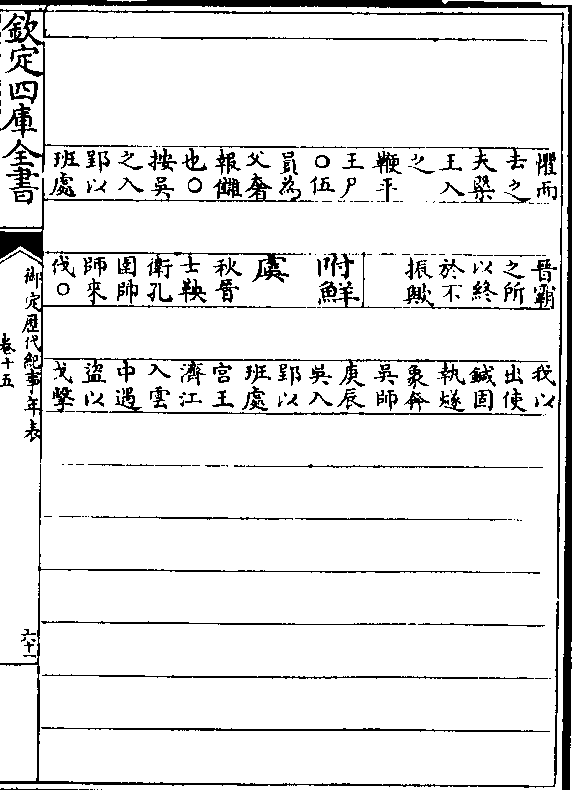 懼而
去之
夫槩
王入
之
鞭平
王尸
〇伍
員為
父奢
報讎
也〇
按吳
之入
郢以
班處
晉霸
之所
以終
於不
振歟
附鮮
虞
秋晉
士鞅
衛孔
圉帥
師來
伐〇
我以
出使
鍼固
執燧
象奔
吳師
庚辰
吳入
郢以
班處
宮王
濟江
入雲
中遇
盜以
戈擊
欽定四庫全書
御定歷代紀事年表
卷十五
六十一